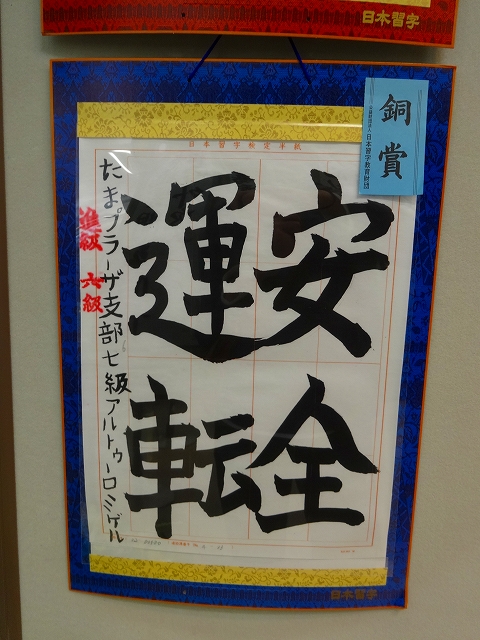 日本習字
銅賞
公益財団法人 日本習字教育財団
日本習字検定半紙
安全
運転
たまプラーザ支部七級アルトゥーロミゲル
進級 六級
日本習字